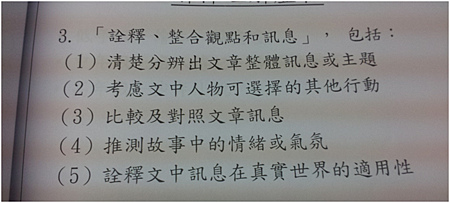 3. 「詮釋、整合觀點和訊息」, 包括：
(1) 清楚分辨出文章整體訊息或主題
(2) 考慮文中人物可選擇的其他行動
(3) 比較及對照文章訊息
(4) 推測故事中的情緒或氣氛
(5) 詮釋文中訊息在真實世界的適用性